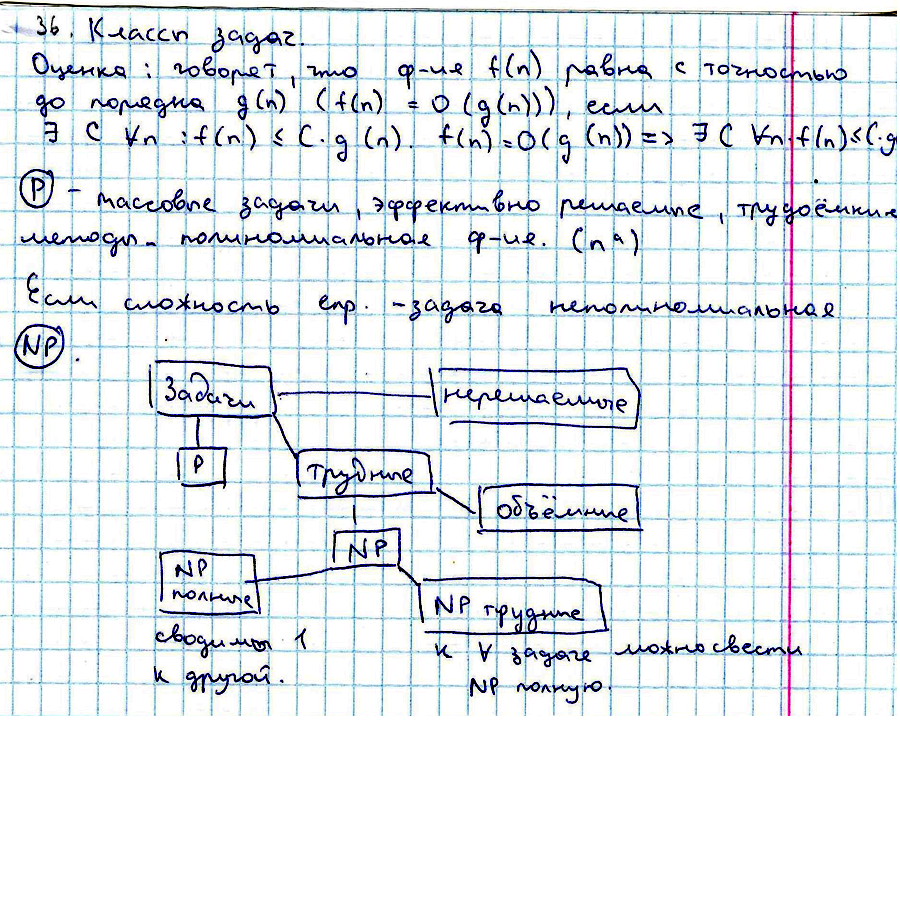 36. Классы задач.
Оценка: говорят, что ф-ия f(n) равна с точностью
до порядка g(n) (f(n) = O(g(n))), если
∃ C ∀n : f(n) ≤ C·g(n). f(n)=O(g(n)) => ∃ C ∀n· f(n) ≤ C·g
(P) - массовые задачи, эффективно решаемые, трудоёмкие
методы- полиномиальная ф-ия. (n^a)
Если сложность епр. - задача неполиномиальная
(NP).
Задачи
нерешаемые
P
трудные
объёмные
NP
NP
полные
NP трудные
сводимы 1
к другой.
к ∀ задаче можно свести
NP полную.